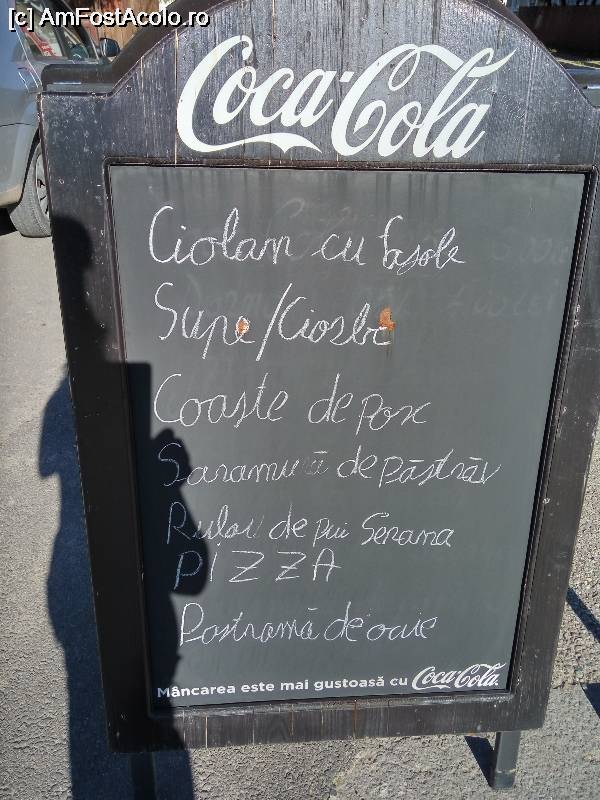 [c] AmFostAcolo.ro
Coca-Cola
Ciolan cu fasole
Supe/Ciorbe
Coaste de porc
Saramură de păstrăv
Rulou de pui Serana
PIZZA
Pastramă de oaie
Mâncarea este mai gustoasă cu Coca-Cola.